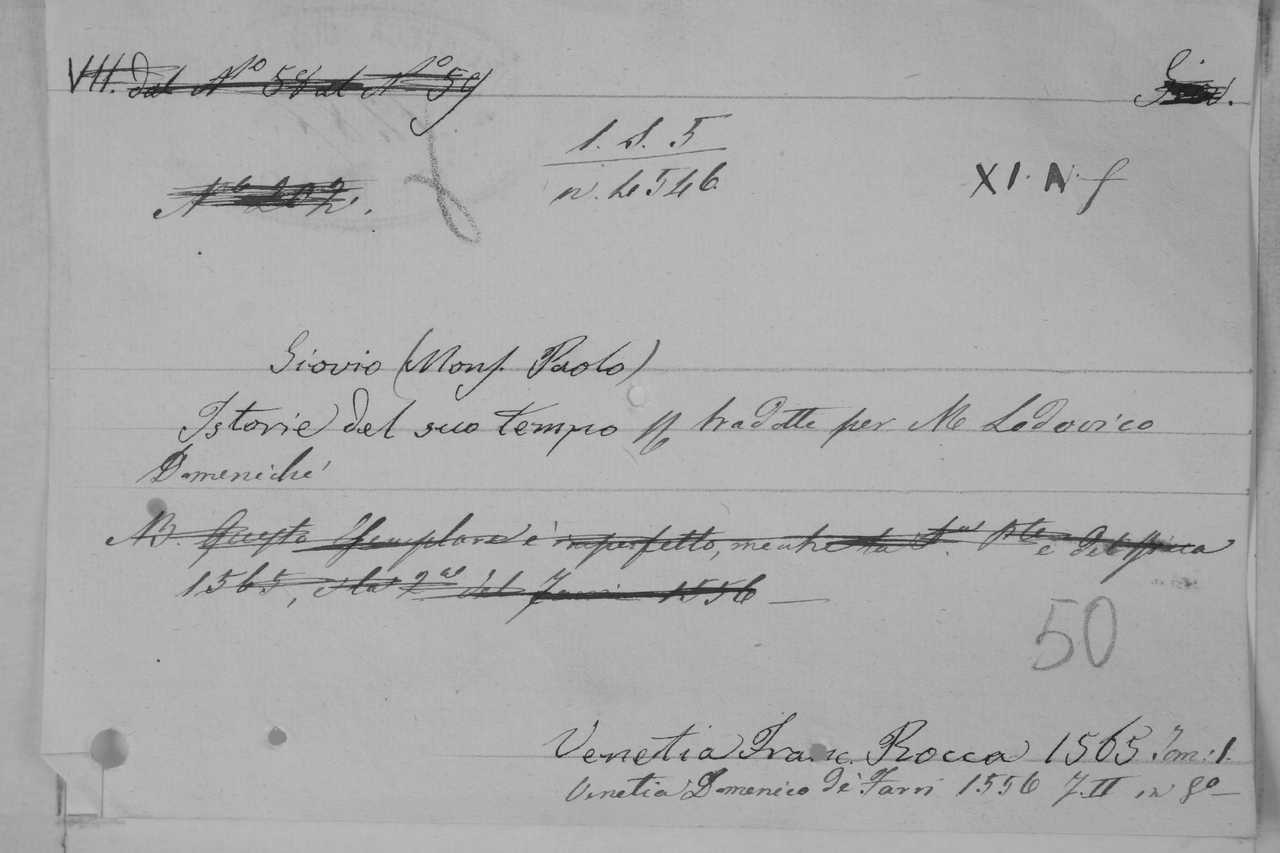 VII. dal Nº 58 al Nº 59
G.
1. d. 5
n. 4546
Nº 202.
XI. N. f
Giovio (Monf. Paolo)
Istorie del suo tempo tradotte per M Lodovico
Domenichi
NB. Questo Esemplare è imperfetto, mentre la è del Rocca
1565, e la 2ª del Farri 1556 —
50
Venetia Franc. Rocca 1565 Tom: 1.
Venetia Domenico de' Farri 1556 T. II in 8º —